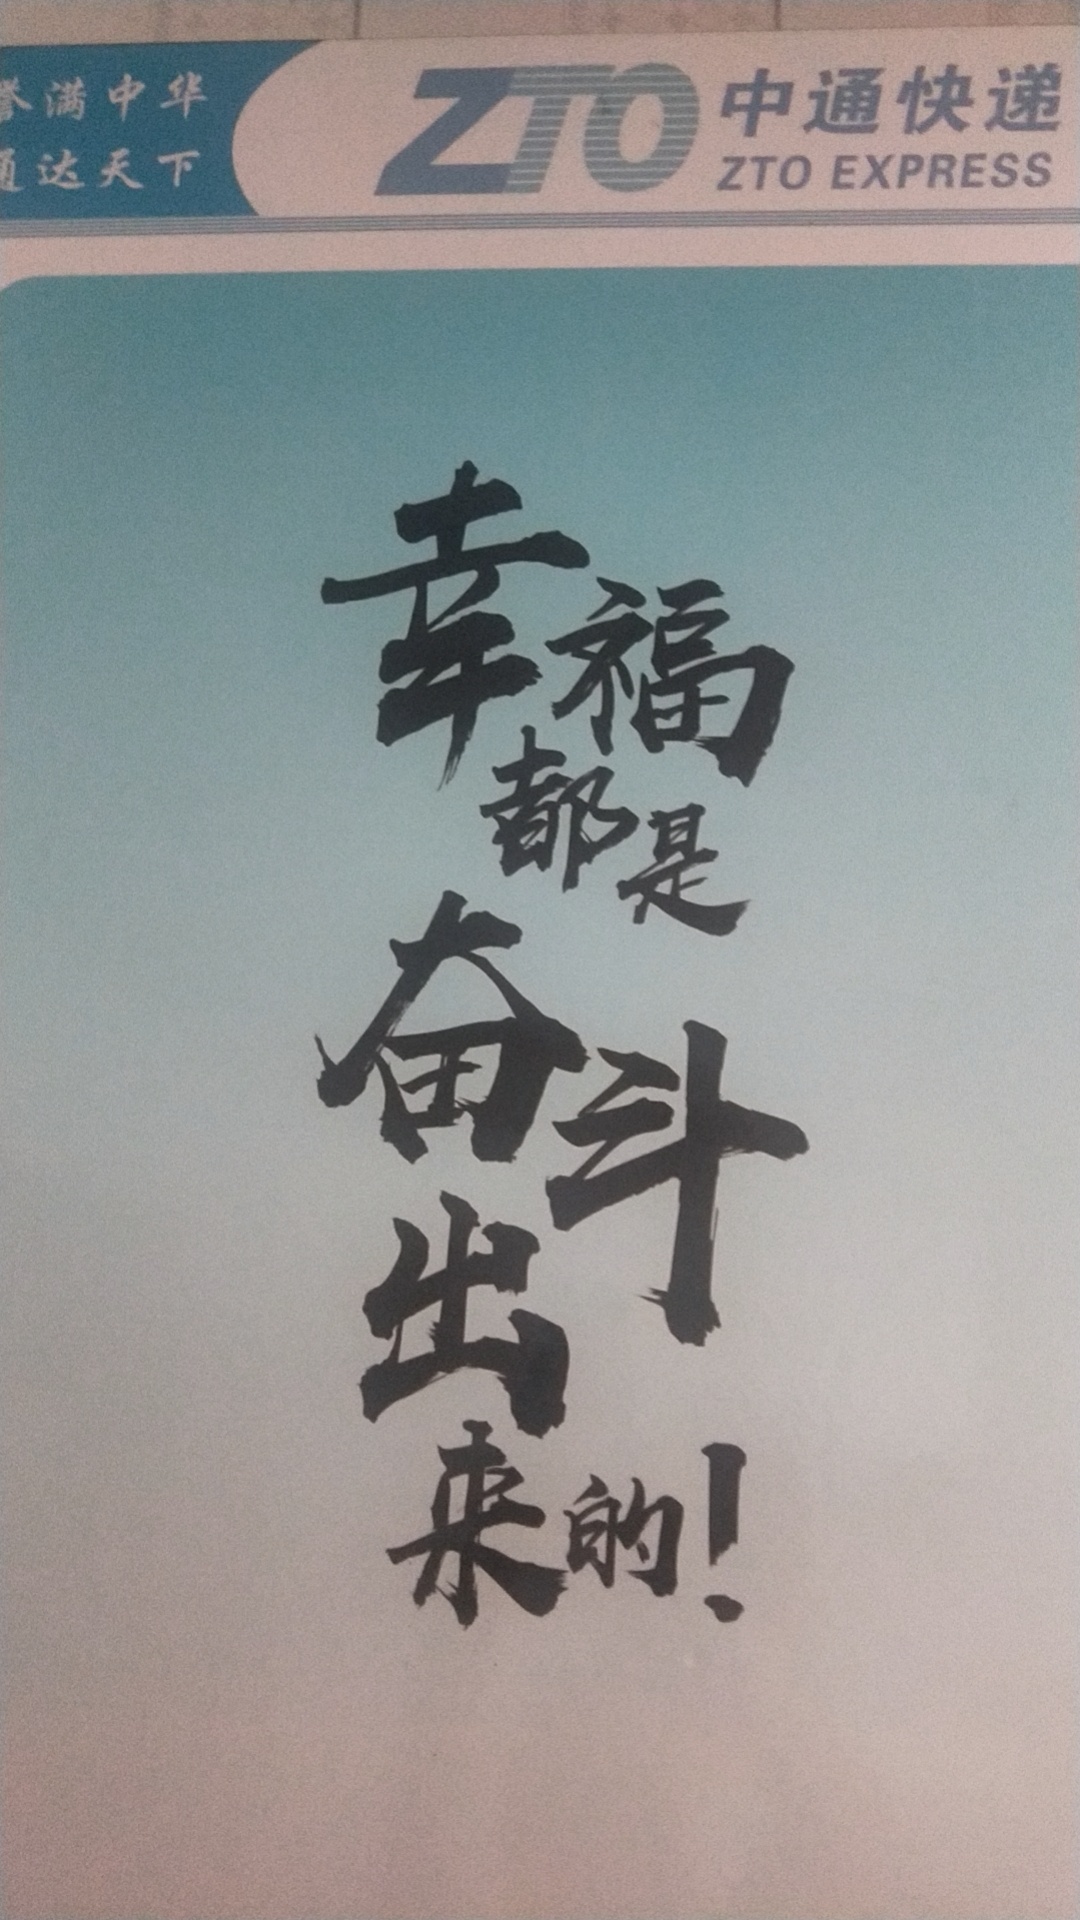 誉满中华
通达天下
ZTO 中通快递
ZTO EXPRESS
幸福
都是
奋斗
出
来的！